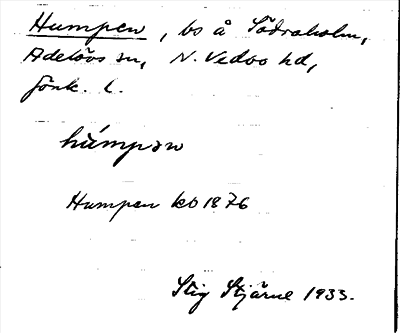 Humpen, bs å Södraholm,
Adelövs sn, N. Vedbo hd,
Jönk. l.
húmpən
Humpen kb 1876
Stig Stjärne 1933.